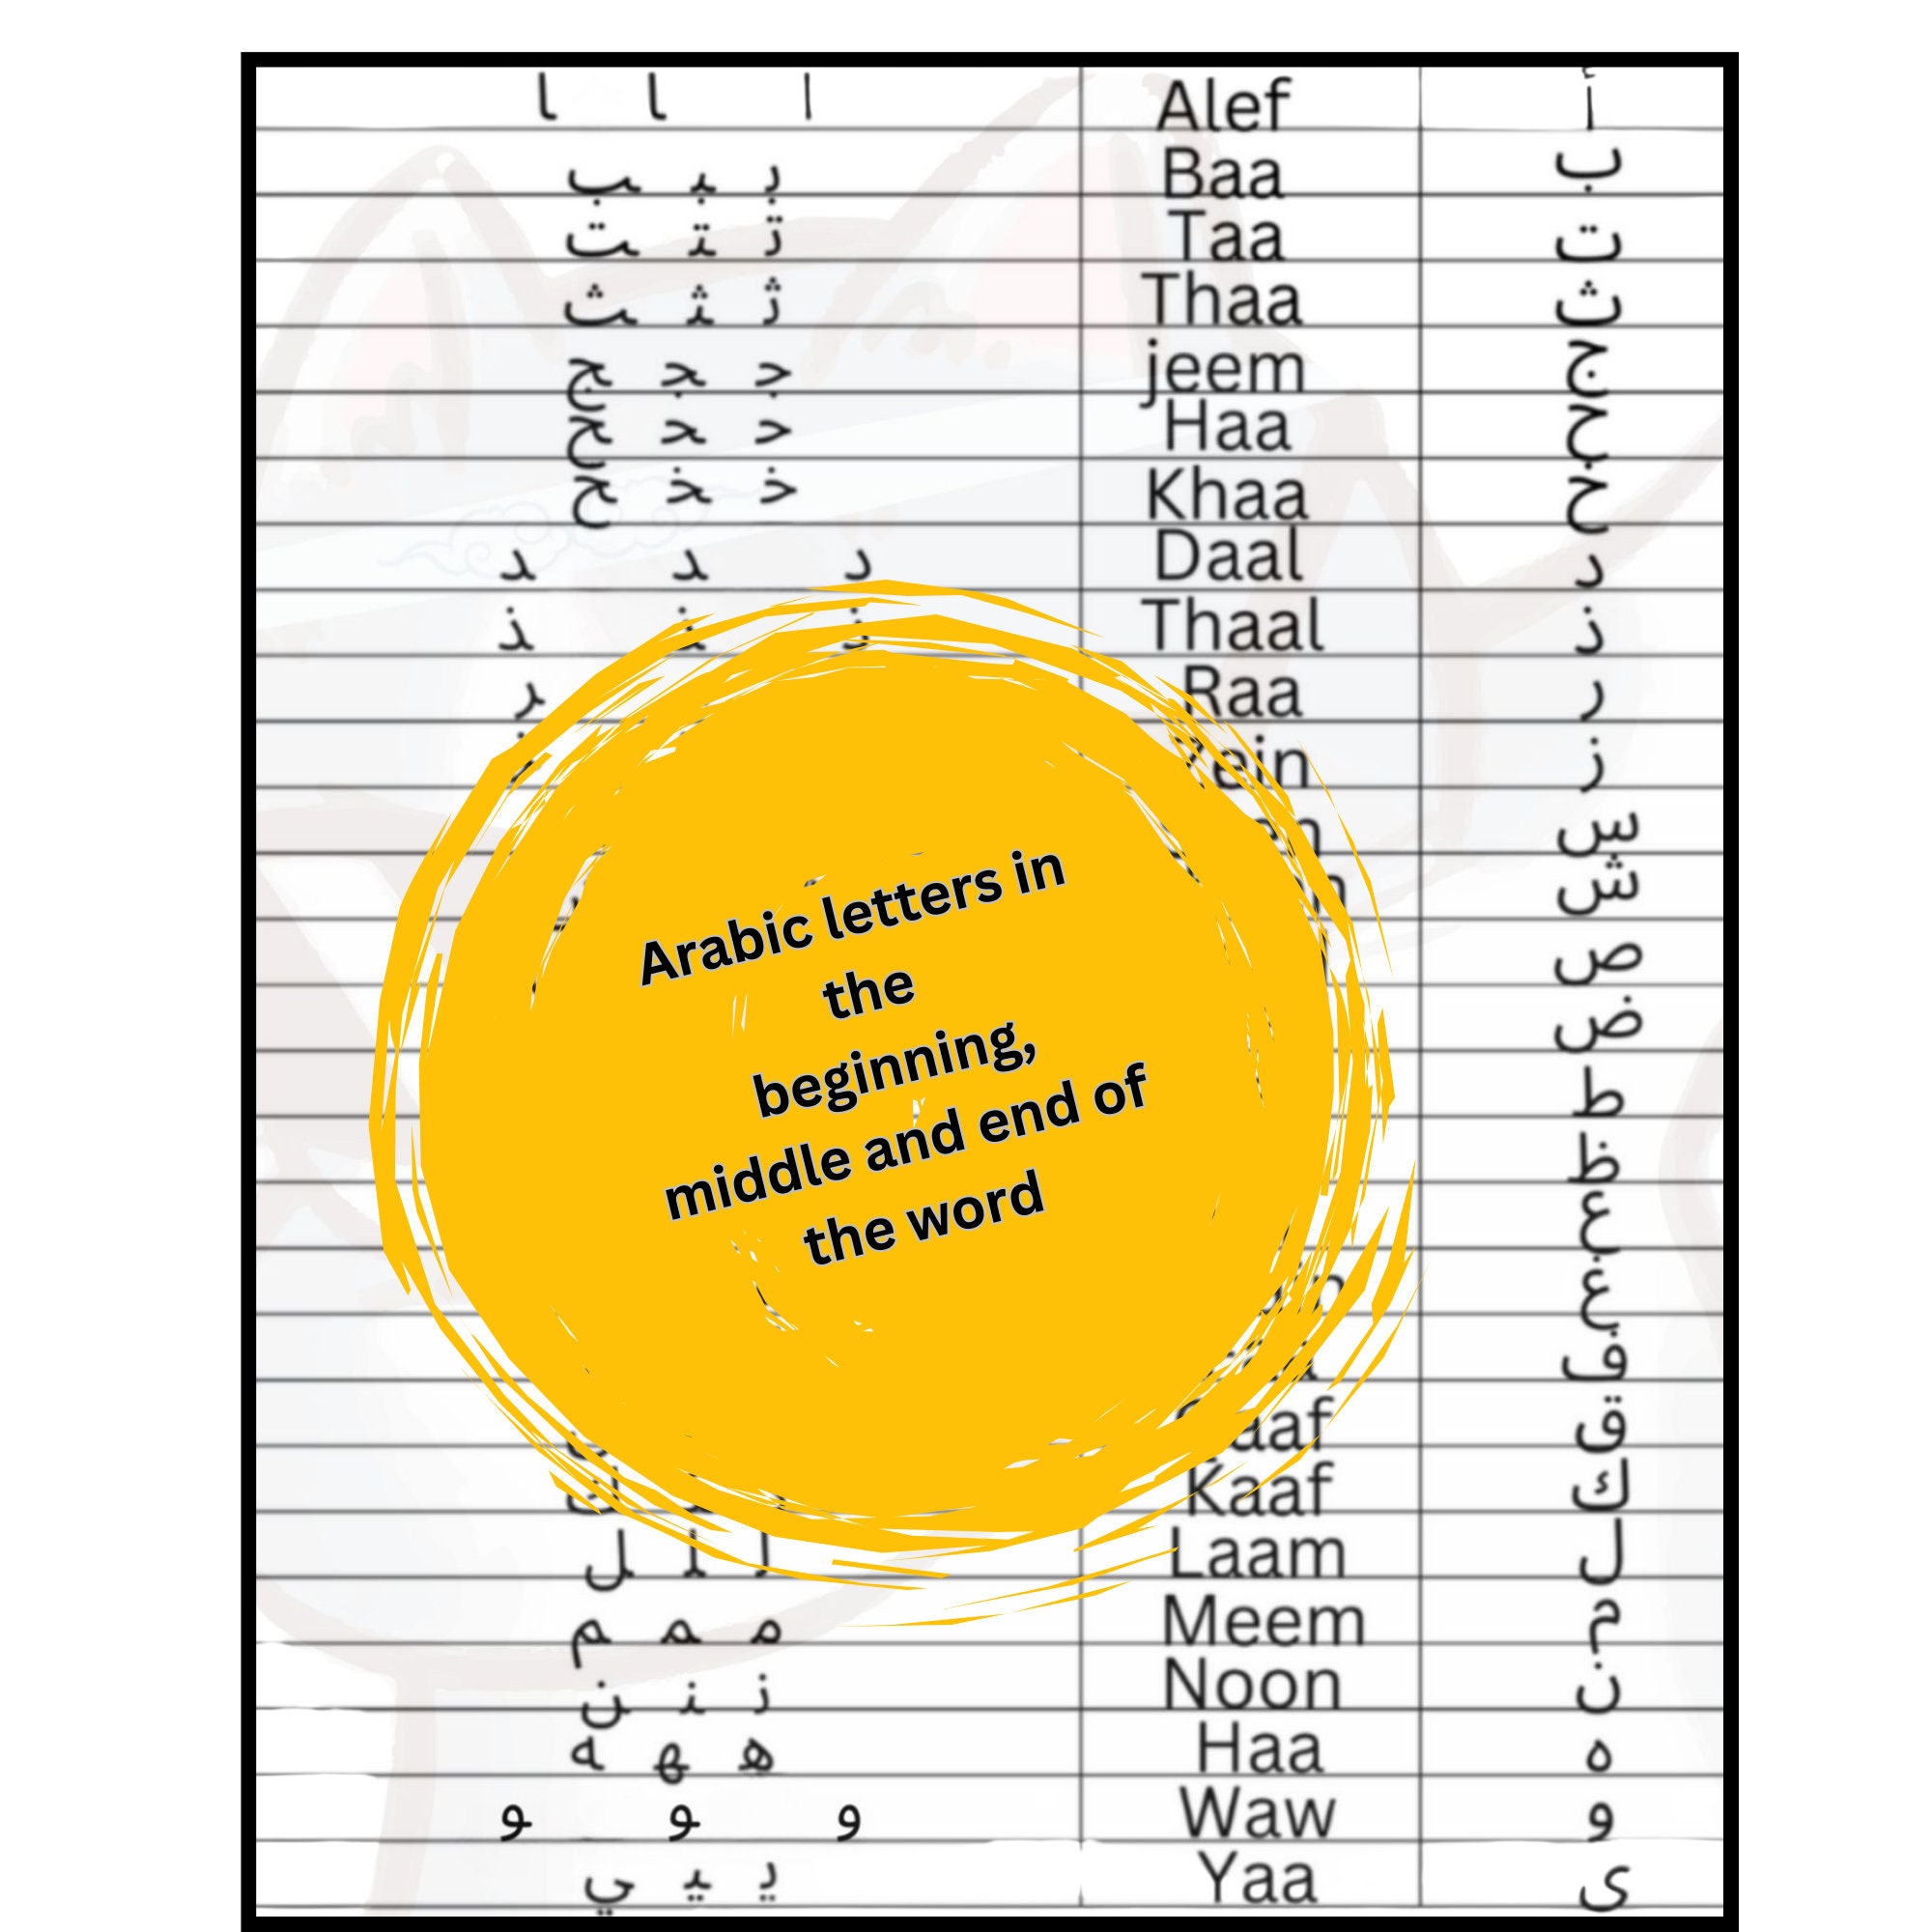 ا ا ا Alef أ
بـ ـبـ ـب Baa ب
تـ ـتـ ـت Taa ت
ثـ ـثـ ـث Thaa ث
جـ ـجـ ـج jeem ج
حـ ـحـ ـح Haa ح
خـ ـخـ ـخ Khaa خ
د ـد ـد Daal د
ذ ـذ ـذ Thaal ذ
ـر Raa ر
Zein ز
س
ش
ص
ض
ط
ظ
ع
غ
ف
ق
Kaaf ك
لـ ـلـ ـل Laam ل
مـ ـمـ ـم Meem م
نـ ـنـ ـن Noon ن
هـ ـهـ ـه Haa ه
و ـو ـو Waw و
يـ ـيـ ـي Yaa ى
Arabic letters in
the
beginning,
middle and end of
the word